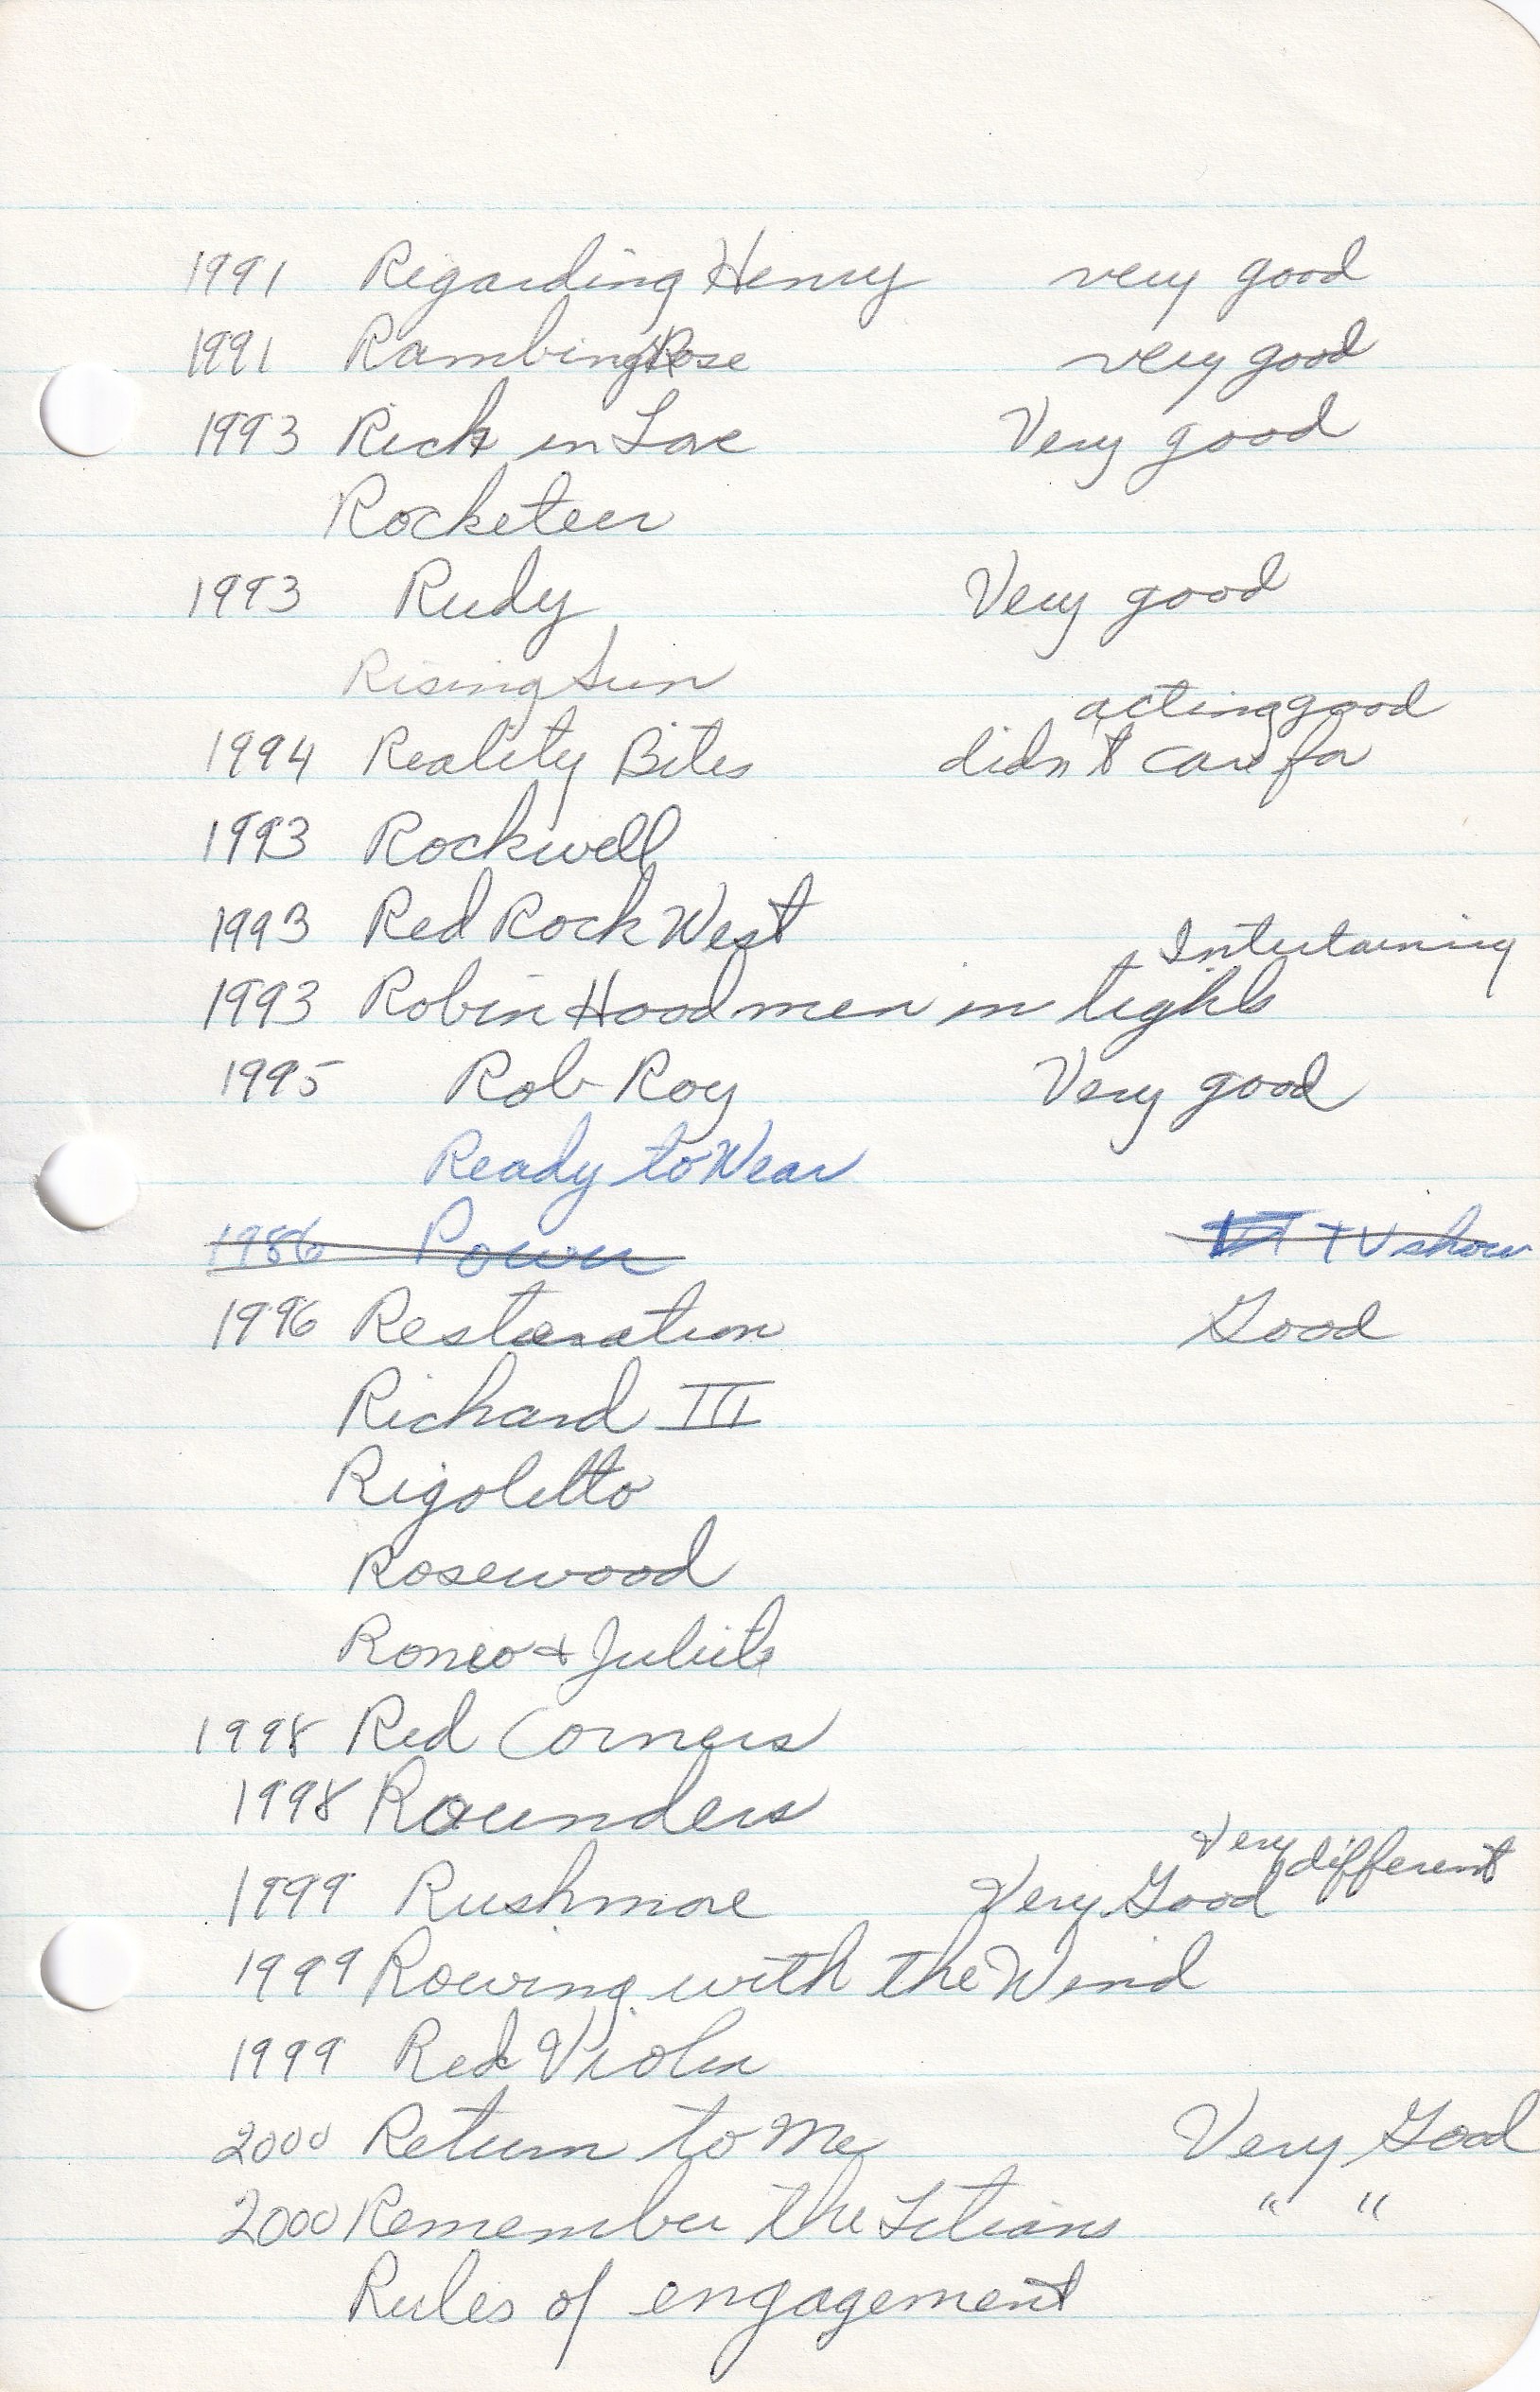 1991 Regarding Henry very good
1991 Rambing Rose very good
1993 Rich in Love Very good
Rocketeer
1993 Rudy Very good
Rising Sun
acting good
1994 Reality Bites didn't care for
1993 Rockwell
1993 Red Rock West
Intertaining
1993 Robin Hood men in tights
1995 Rob Roy Very good
Ready to Wear
1986 Power TV show
1996 Restoration Good
Richard III
Rigoletto
Rosewood
Romeo + Juliete
1998 Red Corners
1998 Rounders
very different
1999 Rushmore Very Good
1999 Rowing with the Wind
1999 Red Violin
2000 Return to Me Very Good
2000 Remember the Titians " "
Rules of engagement